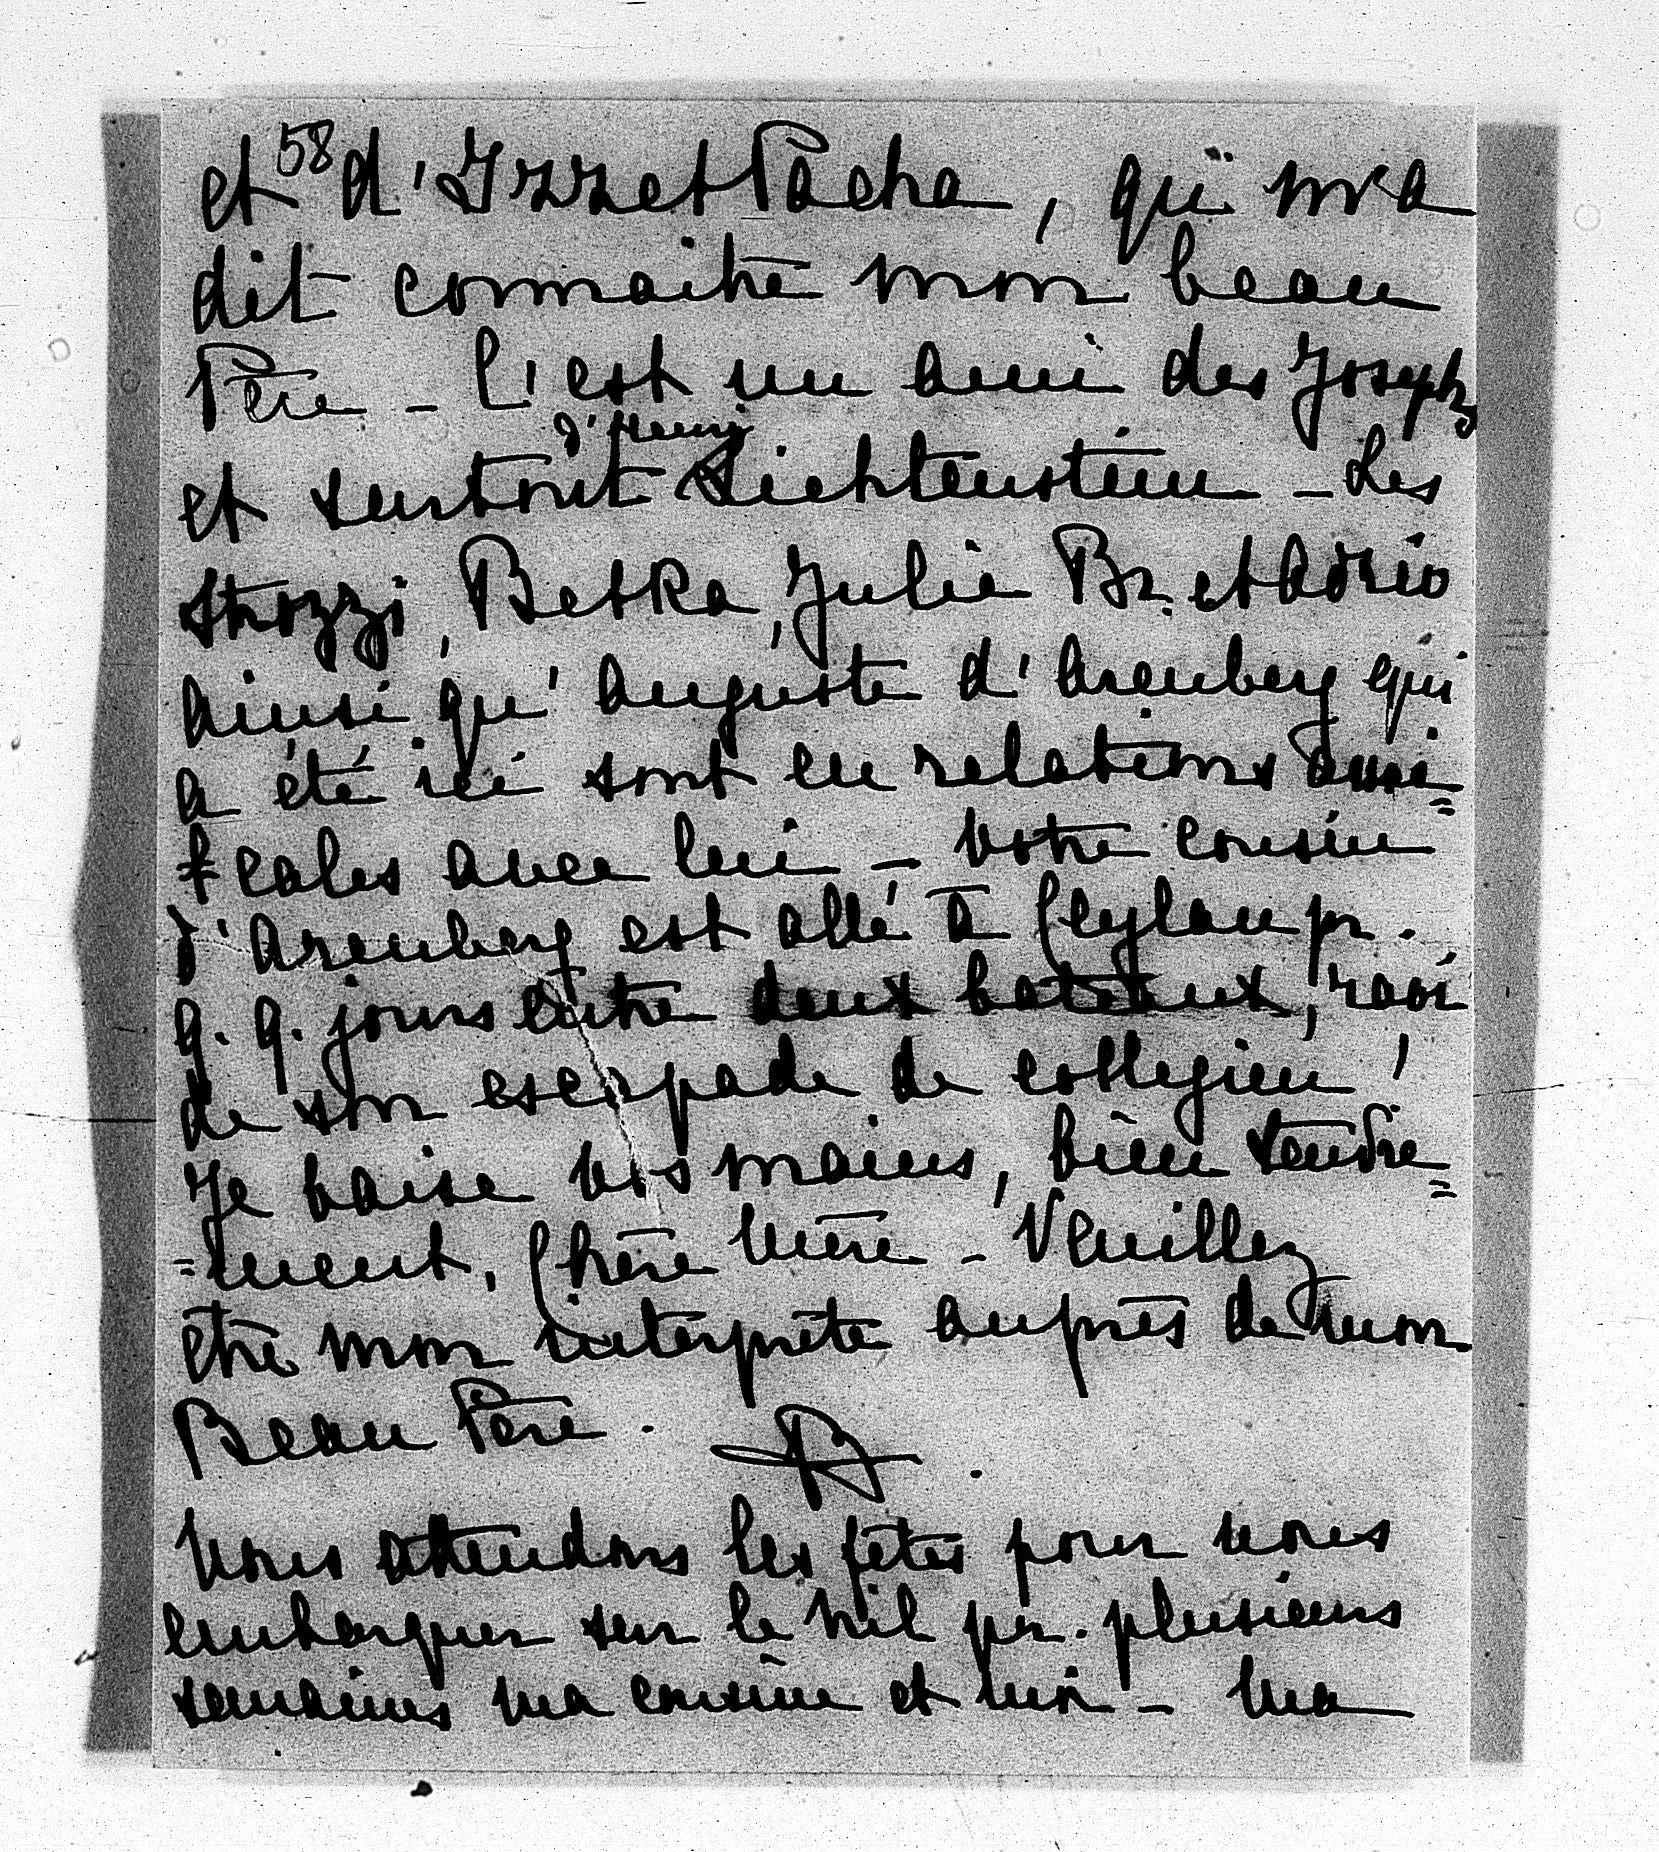 58
et d'Izzet Pacha, qui m'a
dit connaitre mon beau
Père - C'est un ami des Joseph
d'Henri
et surtout Liechtenstein - Les
Strozzi, Betka, Julie Bz. et
ainsi qu'Auguste d'Arenberg qui
a été ici sont en relations ami=
=cales avec lui - Votre cousin
d'Arenberg est allé à Ceylan pr.
q. q. jours entre deux bateaux, ravi
de son escapade de collegien!
Je baise vos mains, bien tendre=
=ment, Chère Mère - Veuillez
être mon interprète auprès de mon
Beau Père.
Nous attendons les fêtes pour nous
embarquer sur le Nil pr. plusieurs
semaines ma cousine et moi - Ma